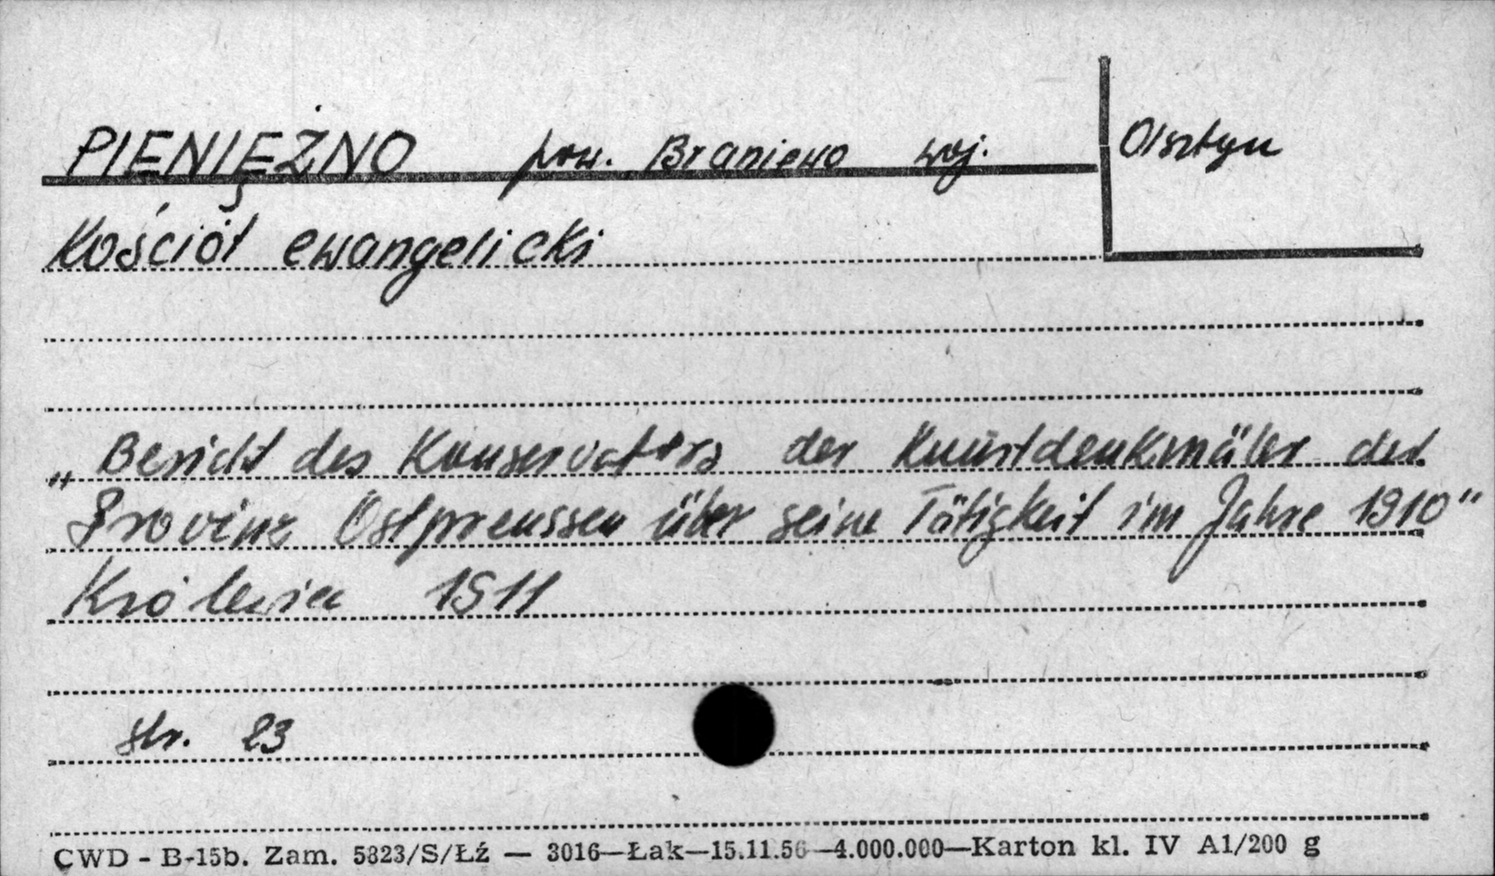 PIENIĘŻNO pow. Braniewo woj. Olsztyn
Kościół ewangelicki
„Bericht des Konservators der Kunstdenkmäler der
Provinz Ostpreussen über seine Tätigkeit im Jahre 1910"
Królewiec 1911
str. 23
CWD - B-15b. Zam. 5823/S/Łź — 3016—Łak—15.11.56—4.000.000—Karton kl. IV A1/200 g